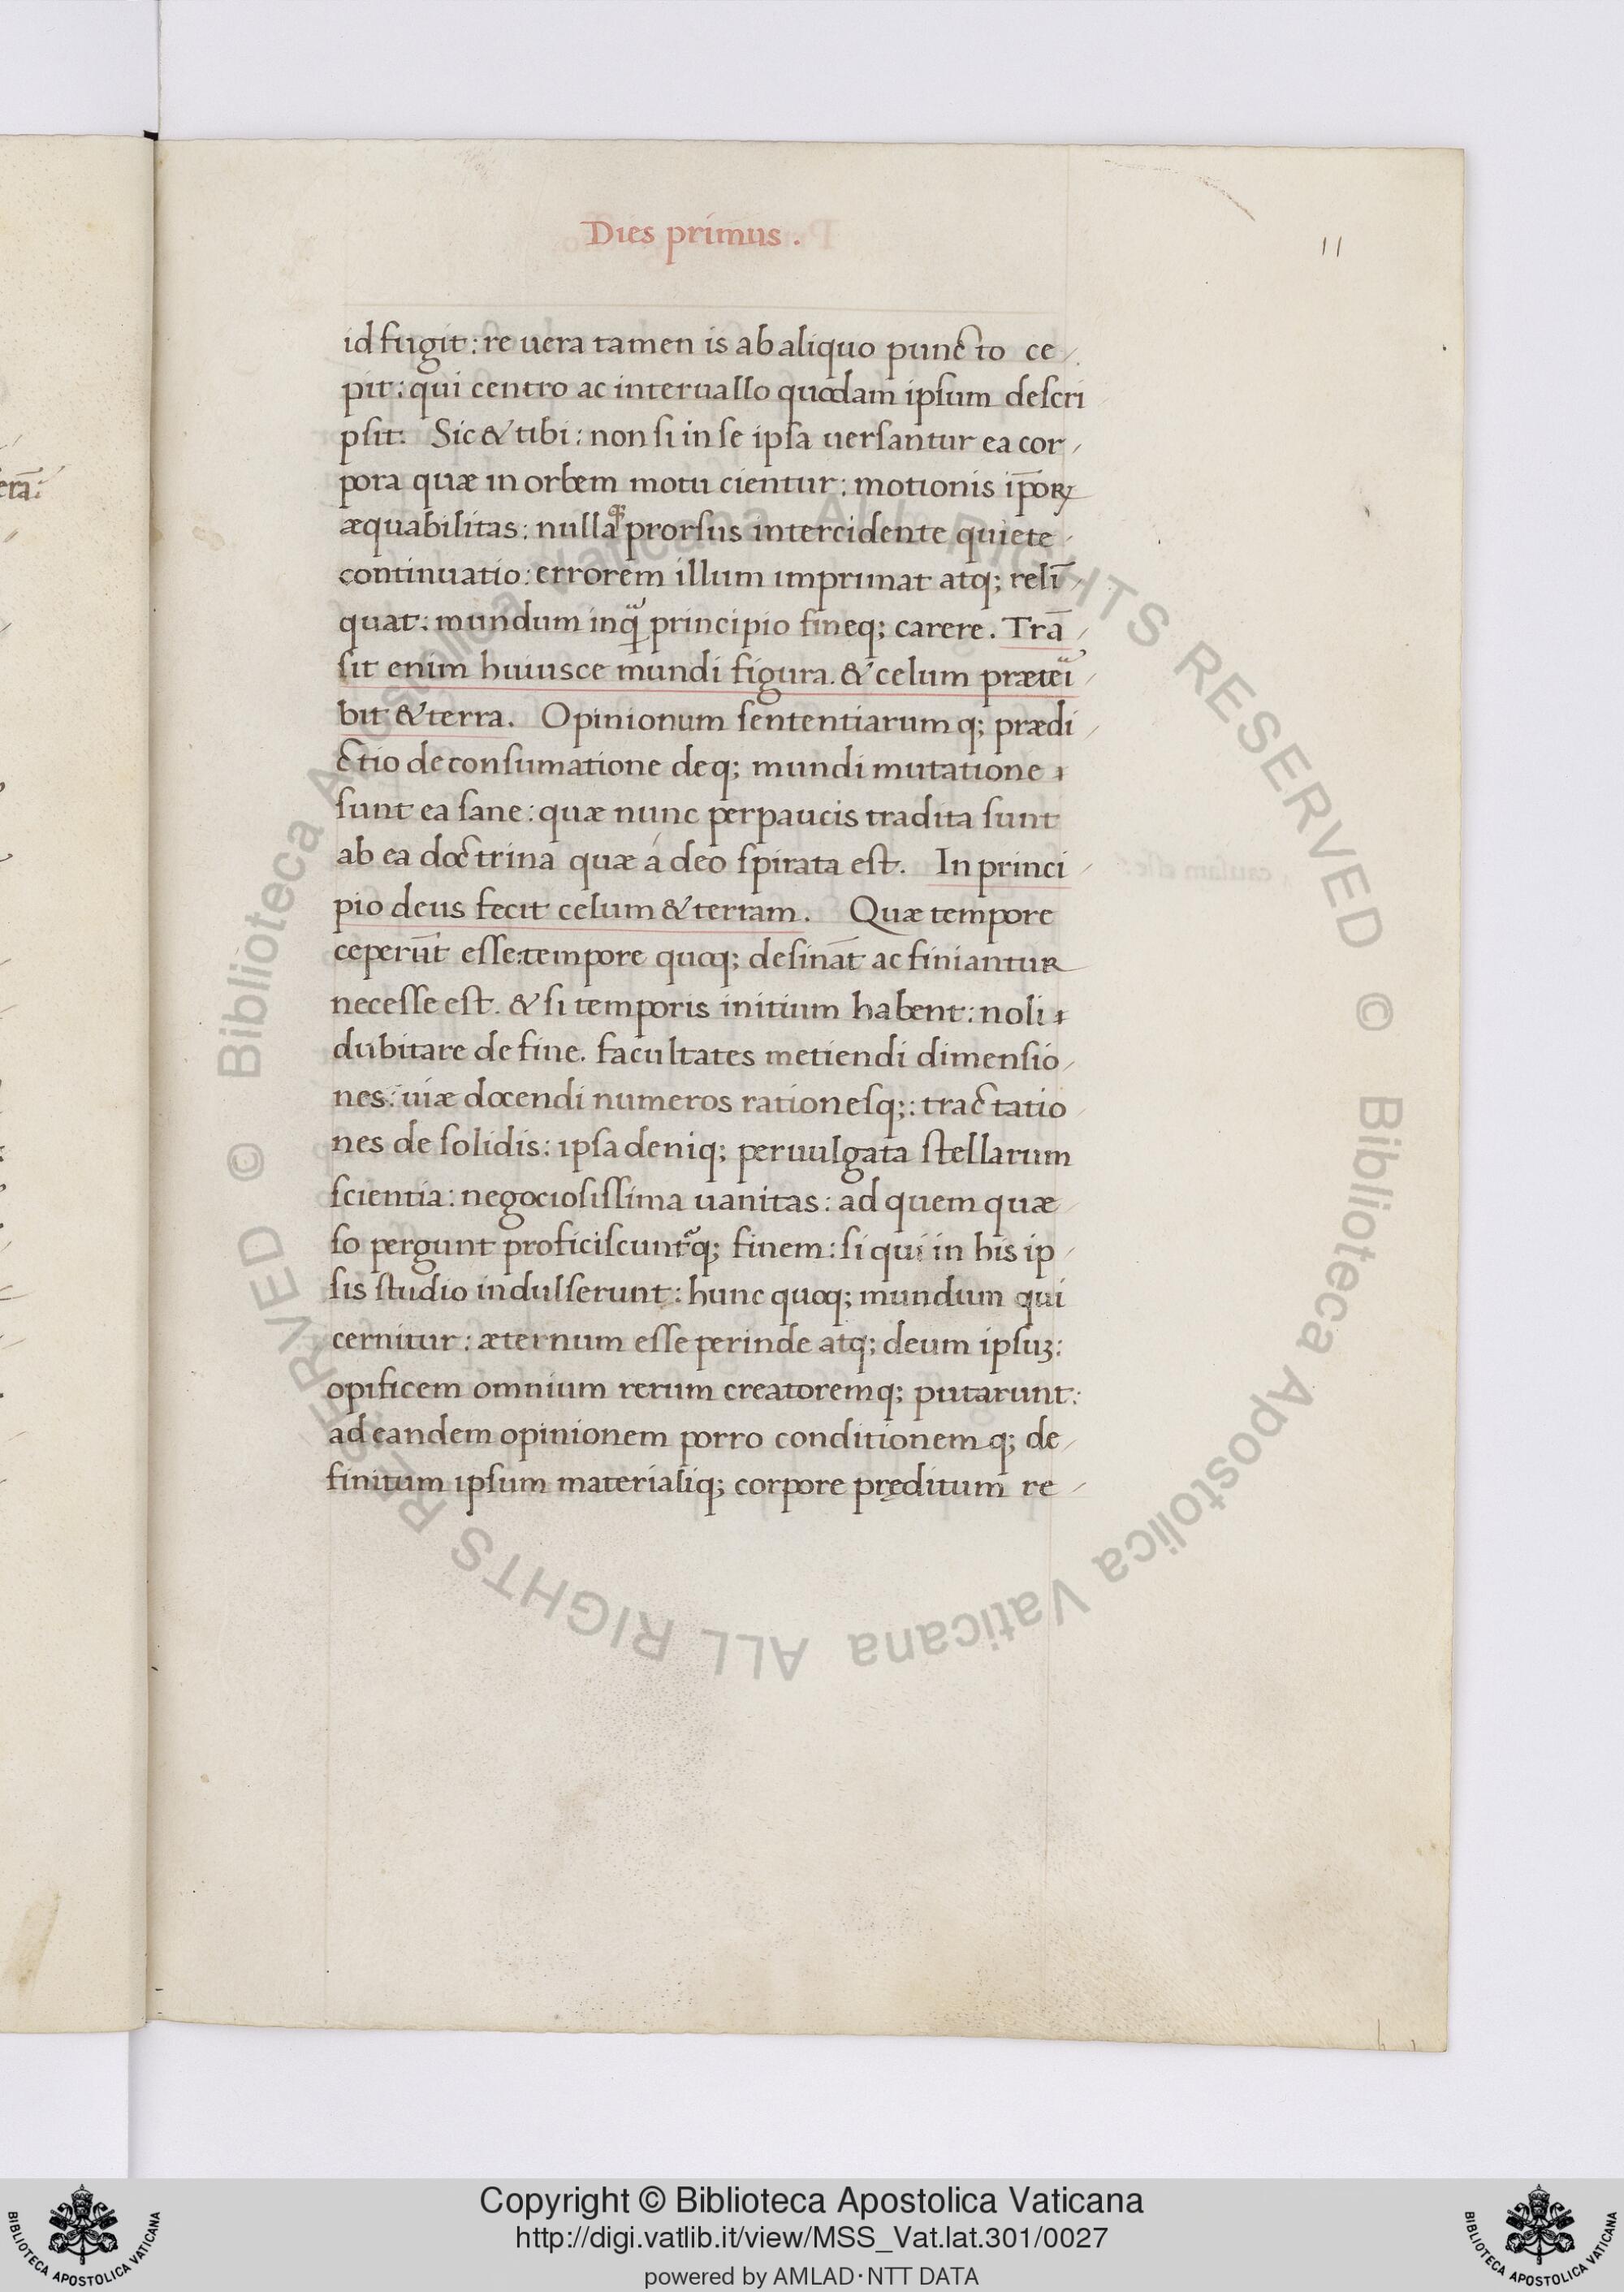 Dies primus.
11
id fugit: re uera tamen is ab aliquo puncto ce
pit: qui centro ac interuallo quodam ipsum descri
psit. Sic & tibi: non si in se ipsa uersantur ea cor
pora quæ in orbem motu cientur: motionis ip̄oꝝ
æquabilitas: nullaqꝫ prorsus intercidente quiete
continuatio: errorem illum imprimat atq; relī
quat: mundum inq̈ principio fineq; carere. Trā
sit enim huiusce mundi figura. & celum præteı̈
bit & terra. Opinionum sententiarumq; prædi
ctio de consumatione deq; mundi mutatione
sunt ea sane: quæ nunc perpaucis tradita sunt
ab ea doctrina quæ á deo spirata est. In princi
pio deus fecit celum & terram. Quæ tempore
ceperūt esse: tempore quoq; desināt ac finiantur
necesse est. & si temporis initium habent: noli
dubitare de fine. facultates metiendi dimensio
nes: uiæ docendi numeros rationesq;: tractatio
nes de solidis: ipsa deniq; peruulgata stellarum
scientia: negociosissima uanitas: ad quem quæ
so pergunt proficiscunt᷑q; finem: si qui in his ip
sis studio indulserunt: hunc quoq; mundum qui
cernitur: æternum esse perinde atq; deum ipsuꝫ:
opificem omnium rerum creatoremq; putarunt:
ad eandem opinionem porro conditionemq; de
finitum ipsum materialiq; corpore pręditum re
© Biblioteca Apostolica Vaticana ALL RIGHTS RESERVED © Biblioteca Apostolica Vaticana ALL RIGHTS RESERVED
Copyright © Biblioteca Apostolica Vaticana
http://digi.vatlib.it/view/MSS_Vat.lat.301/0027
powered by AMLAD·NTT DATA
BIBLIOTECA APOSTOLICA VATICANA
BIBLIOTECA APOSTOLICA VATICANA